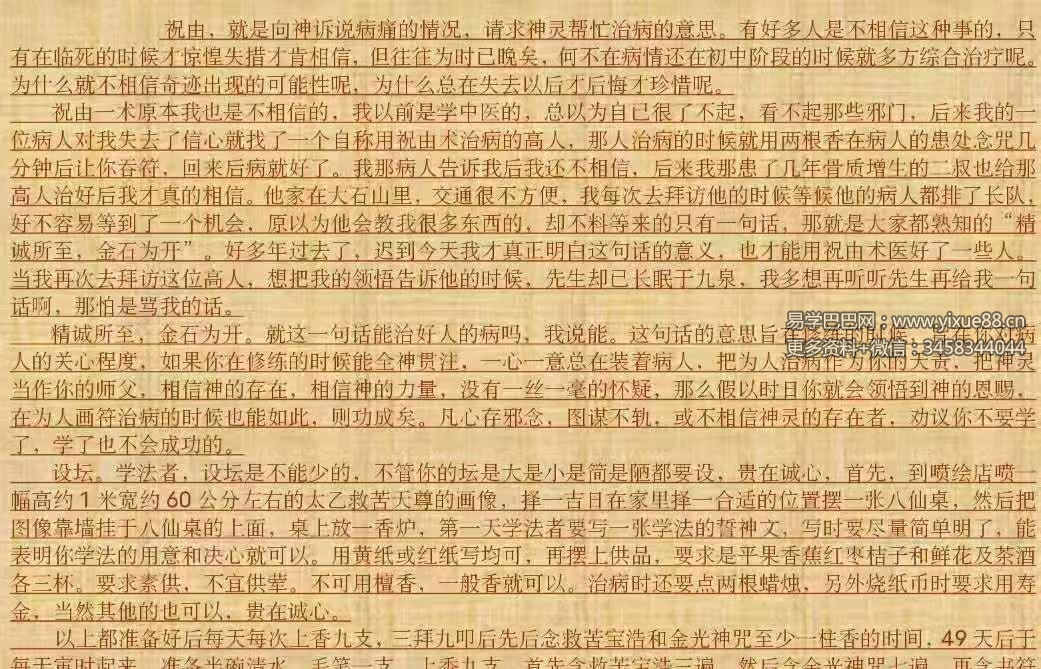 祝由，就是向神诉说病痛的情况，请求神灵帮忙治病的意思。有好多人是不相信这种事的，只
有在临死的时候才惊惶失措才肯相信，但往往为时已晚矣，何不在病情还在初中阶段的时候就多方综合治疗呢。
为什么就不相信奇迹出现的可能性呢，为什么总在失去以后才后悔才珍惜呢。
祝由一术原本我也是不相信的，我以前是学中医的，总以为自已很了不起，看不起那些邪门，后来我的一
位病人对我失去了信心就找了一个自称用祝由术治病的高人，那人治病的时候就用两根香在病人的患处念咒几
分钟后让你吞符，回来后病就好了。我那病人告诉我后我还不相信，后来我那患了几年骨质增生的二叔也给那
高人治好后我才真的相信。他家在大石山里，交通很不方便，我每次去拜访他的时候等候他的病人都排了长队，
好不容易等到了一个机会，原以为他会教我很多东西的，却不料等来的只有一句话，那就是大家都熟知的“精
诚所至，金石为开”。好多年过去了，迟到今天我才真正明白这句话的意义，也才能用祝由术医好了一些人。
当我再次去拜访这位高人，想把我的领悟告诉他的时候，先生却已长眠于九泉，我多想再听听先生再给我一句
话啊，那怕是骂我的话。
精诚所至，金石为开。就这一句话能治好人的病吗，我说能。这句话的意思旨在修炼的时候，旨在你对病
易学巴巴网：www.yixue88.cn
人的关心程度，如果你在修练的时候能全神贯注，一心一意总在装着病人，把为人治病作为你的天责，把神灵
更多资料+微信：3458344044
当作你的师父，相信神的存在，相信神的力量，没有一丝一毫的怀疑，那么假以时日你就会领悟到神的恩赐，
在为人画符治病的时候也能如此，则功成矣。凡心存邪念，图谋不轨，或不相信神灵的存在者，劝议你不要学
了，学了也不会成功的。
设坛。学法者，设坛是不能少的，不管你的坛是大是小是简是陋都要设，贵在诚心，首先，到喷绘店喷一
幅高约1米宽约60公分左右的太乙救苦天尊的画像，择一吉日在家里择一合适的位置摆一张八仙桌，然后把
图像靠墙挂于八仙桌的上面，桌上放一香炉，第一天学法者要写一张学法的誓神文，写时要尽量简单明了，能
表明你学法的用意和决心就可以。用黄纸或红纸写均可，再摆上供品，要求是平果香蕉红枣桔子和鲜花及茶酒
各三杯。要求素供，不宜供荤。不可用檀香，一般香就可以。治病时还要点两根蜡烛，另外烧纸币时要求用寿
金，当然其他的也可以，贵在诚心。
以上都准备好后每天每次上香九支，三拜九叩后先后念救苦宝浩和金光神咒至少一柱香的时间．49天后于
每天寅时起来，准备半碗清水，毛笔一支，上香九支，首先念救苦宝浩三遍，然后念金光神咒七遍，再念书符